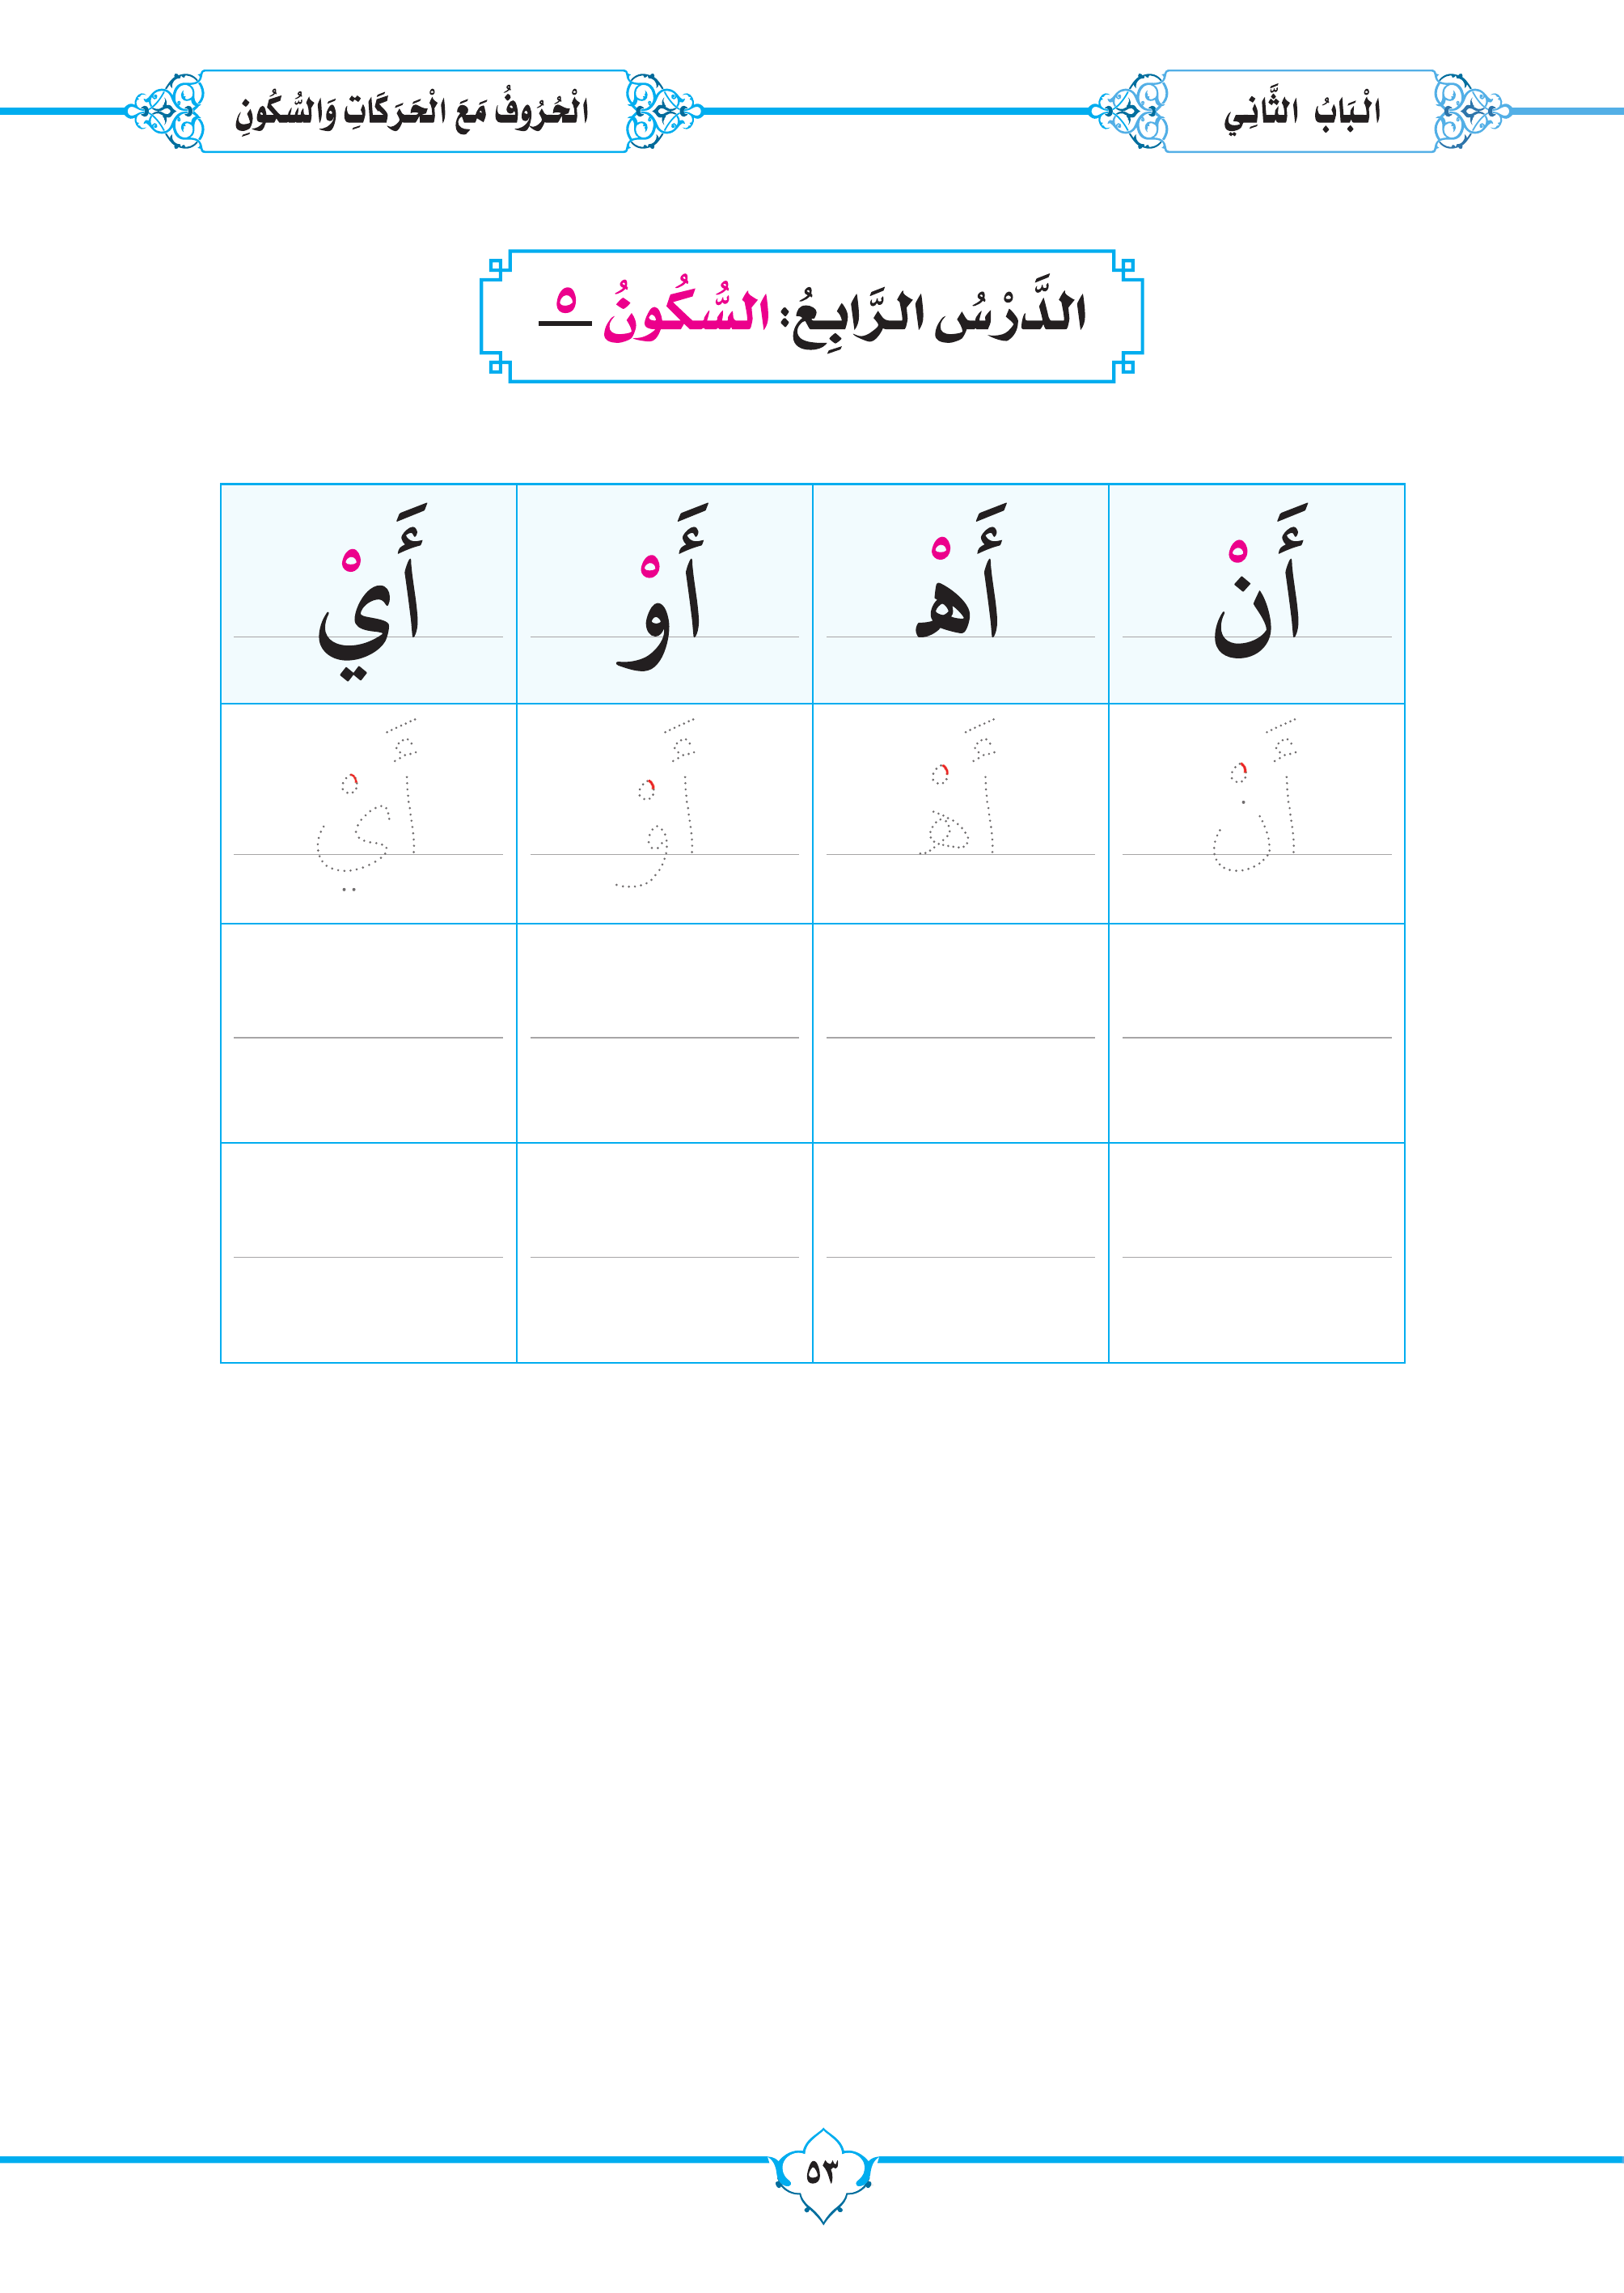 الْبَابُ الثَّانِي
الْحُرُوفُ مَعَ الْحَرَكَاتِ وَالسُّكُونِ
الدَّرْسُ الرَّابِعُ: السُّكُونُ ـْ
أَنْ أَهْـ أَوْ أَيْ
أَنْ أَهْـ أَوْ أَيْ
٥٣